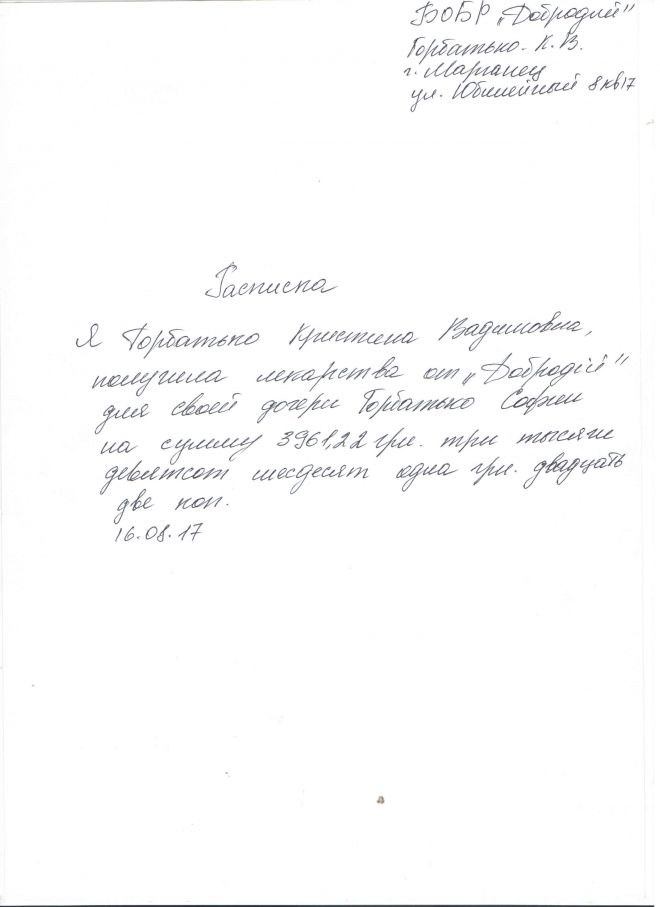 БОБР „Добродий"
Горбатько. К. В.
г. Марганец
ул. Юбилейный 8 кв 17
Расписка
Я Горбатько Кристина Вадимовна,
получила лекарства от „Добродій"
для своей дочери Горбатько Софии
на сумму 3961,22 грн. три тысячи
девятсот шесдесят одна грн. двадцать
две коп.
16.08.17